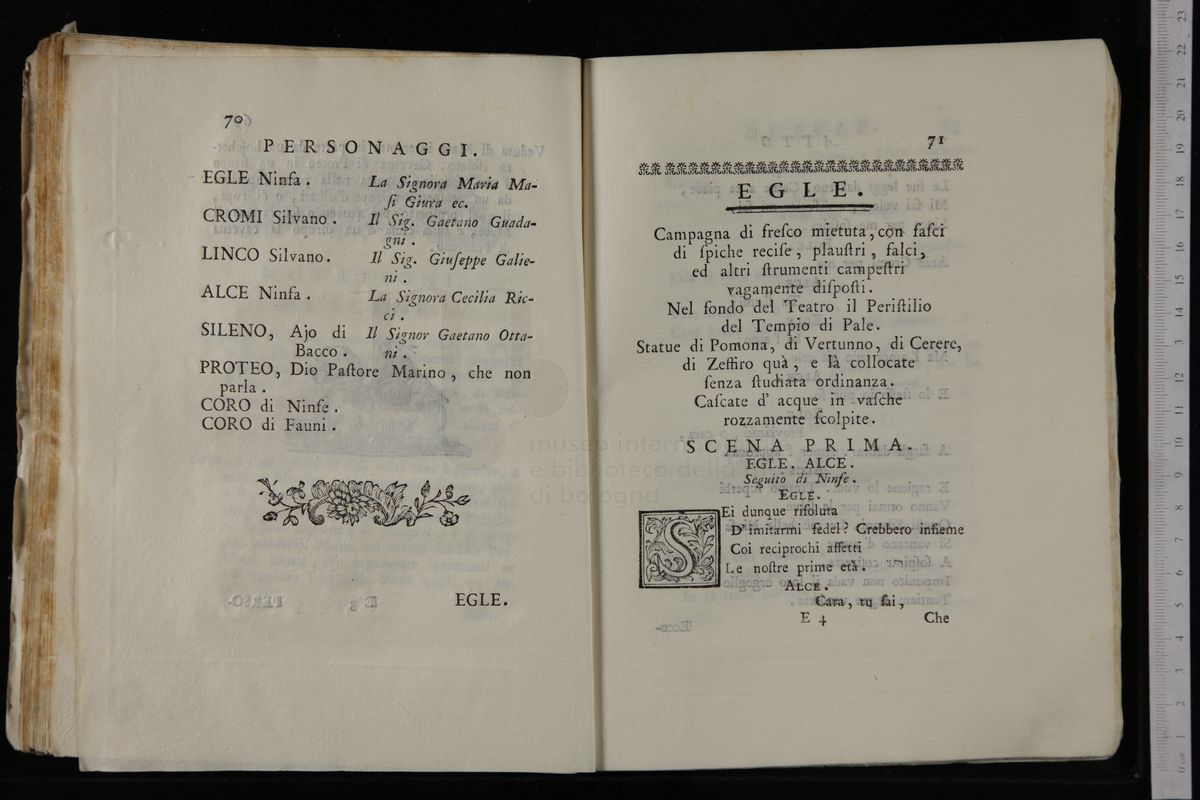 70
PERSONAGGI.
EGLE Ninfa. La Signora Maria Ma-
ſi Giura ec.
CROMI Silvano. Il Sig. Gaetano Guada-
gni.
LINCO Silvano. Il Sig. Giuſeppe Galie-
ni.
ALCE Ninfa. La Signora Cecilia Ric-
ci.
SILENO, Ajo di Il Signor Gaetano Otta-
Bacco. ni.
PROTEO, Dio Paſtore Marino, che non
parla.
CORO di Ninfe.
CORO di Fauni.
EGLE.
71
EGLE.
Campagna di freſco mietuta, con faſci
di ſpiche reciſe, plauſtri, falci,
ed altri ſtrumenti campeſtri
vagamente diſpoſti.
Nel fondo del Teatro il Periſtilio
del Tempio di Pale.
Statue di Pomona, di Vertunno, di Cerere,
di Zeffiro quà, e là collocate
ſenza ſtudiata ordinanza.
Caſcate d' acque in vaſche
rozzamente ſcolpite.
SCENA PRIMA.
EGLE. ALCE.
Seguito di Ninfe.
EGLE.
SEi dunque riſoluta
D' imitarmi fedel? Crebbero inſieme
Coi reciprochi affetti
Le noſtre prime età.
ALCE.
Cara, tu ſai,
E 4 Che
museo inter
e biblioteca della
di bologna